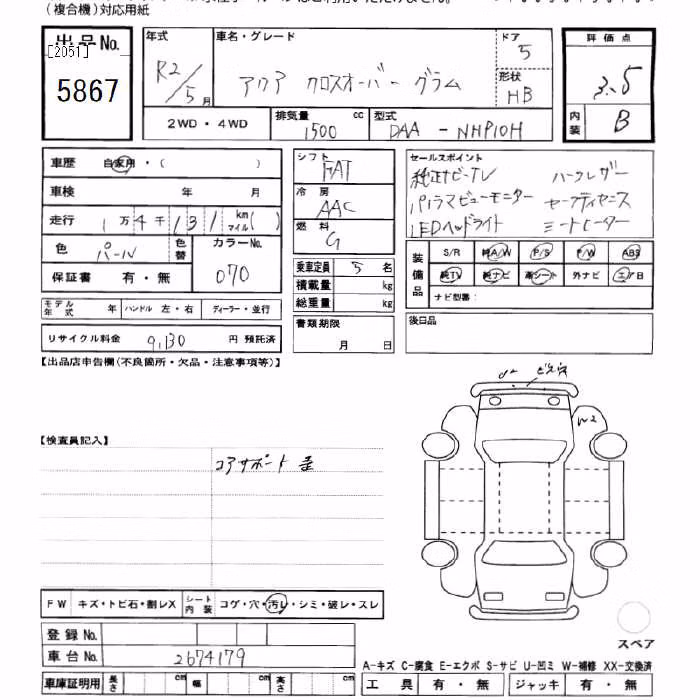 (複合機)対応用紙
出品No.
[2051]
5867
年式
R2/5月
車名・グレード
アクア クロスオーバー グラム
ドア
5
形状
HB
評価点
3.5
内装
B
2WD・4WD
排気量 1500 cc
型式 DAA-NHP10H
車歴 自家用・( )
車検 年 月
走行 1万4千131 km マイル( )
色 パール
色替
カラーNo. 070
保証書 有・無
モデル年式 年 ハンドル 左・右 ディーラー・並行
リサイクル料金 9,130 円 預託済
シフト
FAT
冷房
AAC
燃料
G
乗車定員 5 名
積載量 kg
総重量 kg
書類期限
月 日
セールスポイント
純正ナビ-TV ハーフレザー
パノラマビューモニター セーフティセンス
LEDヘッドライト シートヒーター
装備品
S/R 純A/W P/S P/W ABS
純TV 純ナビ 革シート 外ナビ エア日
ナビ型番:
後日品
【出品店申告欄(不良箇所・欠品・注意事項等)】
【検査員記入】
コアサポート 歪
W2
FW キズ・トビ石・割レX シート内装 コゲ・穴・汚レ・シミ・破レ・スレ
登録No.
車台No. 2674179
車庫証明用 長さ cm 幅 cm 高さ cm
スペア
A-キズ C-腐食 E-エクボ S-サビ U-凹ミ W-補修 XX-交換済
工具 有・無 ジャッキ 有・無